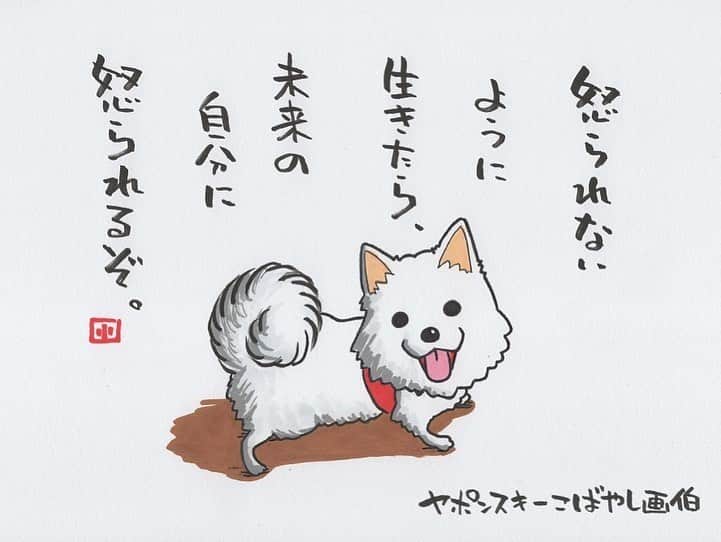 怒られない
ように
生きたら、
未来の
自分に
怒られるぞ。
ヤポンスキーこばやし画伯